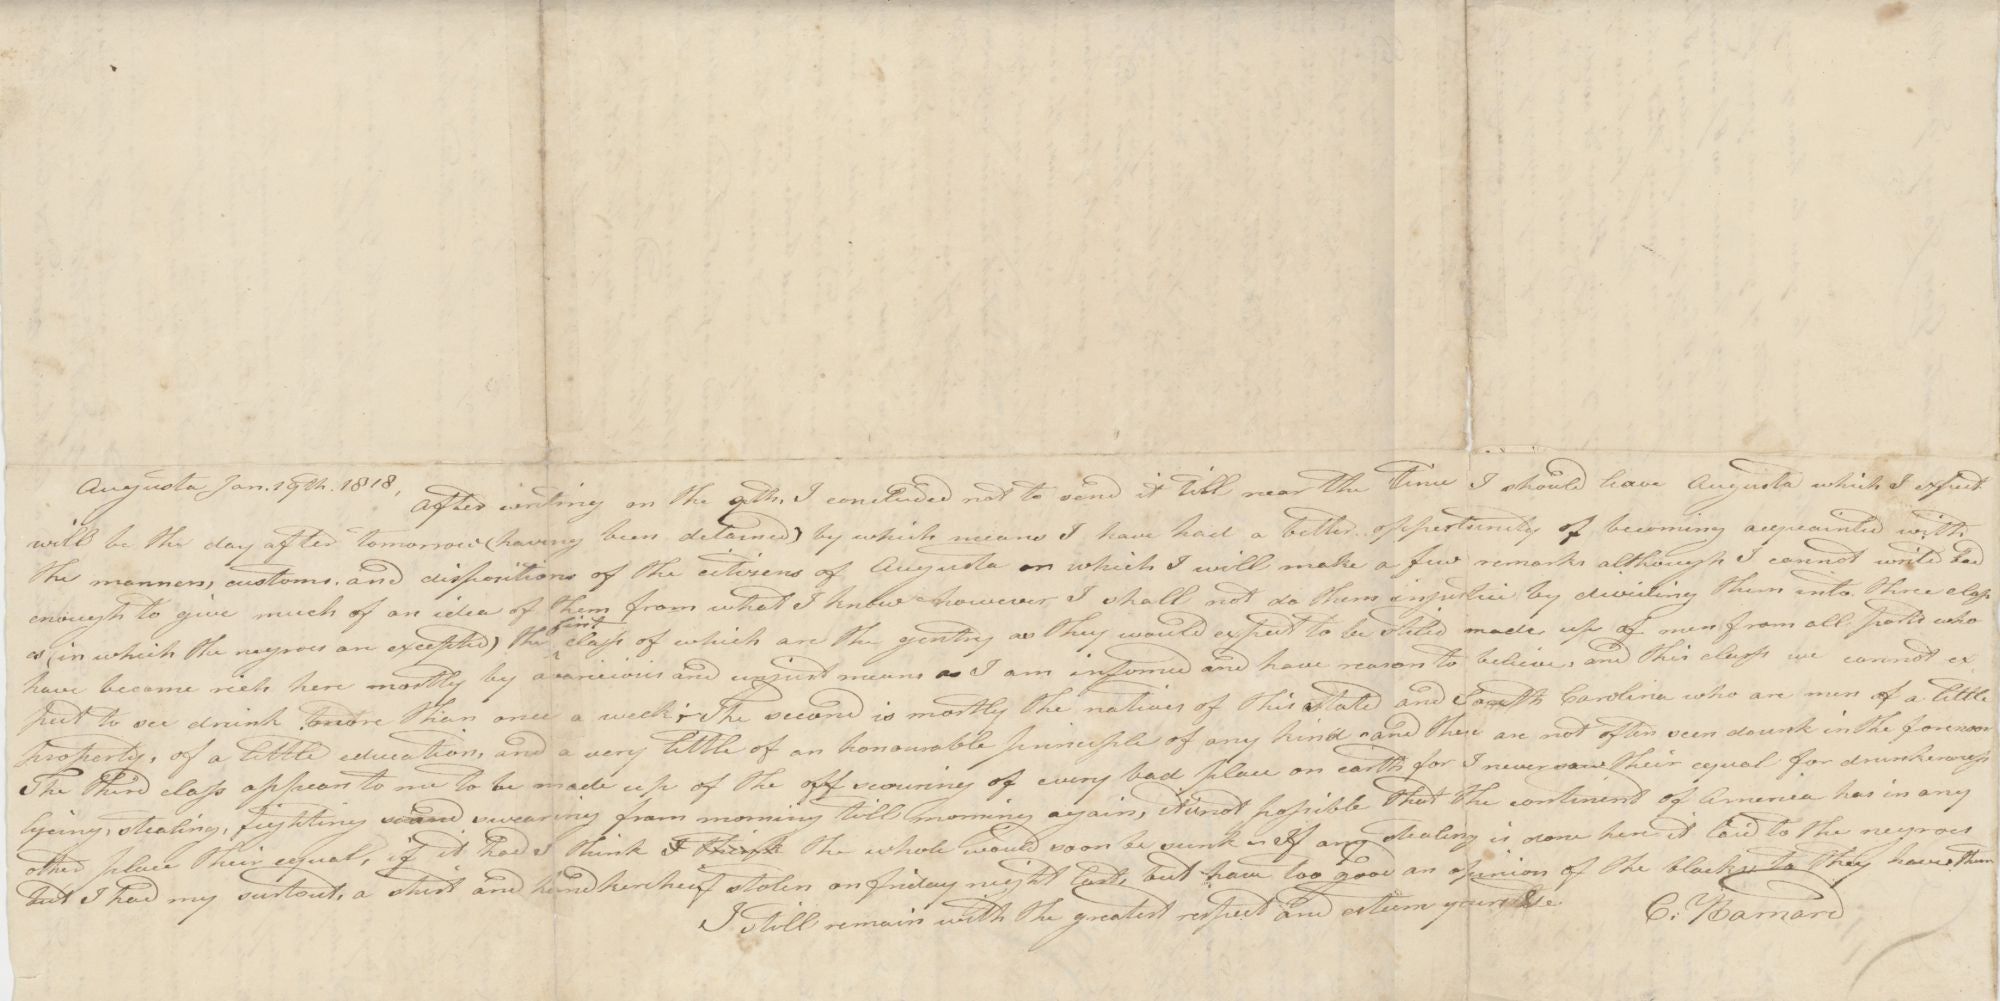 Augusta Jan. 19th. 1818,
After writing on the 9th, I concluded not to send it till near the time I should leave Augusta which I expect
will be the day after tomorrow (having been detained) by which means I have had a better oppertunity of becoming acquainted with
the manners, customs, and dispositions of the citizens of Augusta on which I will make a few remarks although I cannot write bad
enough to give much of an idea of them from what I know however I shall not do them injustice by dividing them into three class
es (in which the negroes are excepted) the first class of which are the gentry as they would expect to be stiled made up of men from all parts who
have become rich here mostly by avaricious and unjust means as I am informed and have reason to believe, and this class we cannot ex
pect to see drunk more than once a week; The second is mostly the natives of this state and South Carolina who are men of a little
property, of a little education, and a very little of an honourable principle of any kind and these are not often seen drunk in the forenoon
The third class appears to me to be made up of the off scouring of every bad place on earth for I never saw their equal for drunkenness
lyeing, stealing, fighting and swearing from morning till morning again, it is not possible that the continent of America has in any
other place their equal, if it had I think I think the whole would soon be sunk. If any stealing is done here it laid to the negroes
but I had my surtout, a shirt and handkerchief stolen on friday night last, but have too good an opinion of the blacks to they have them
I still remain with the greatest respect and esteem yours &c
C. Harnard